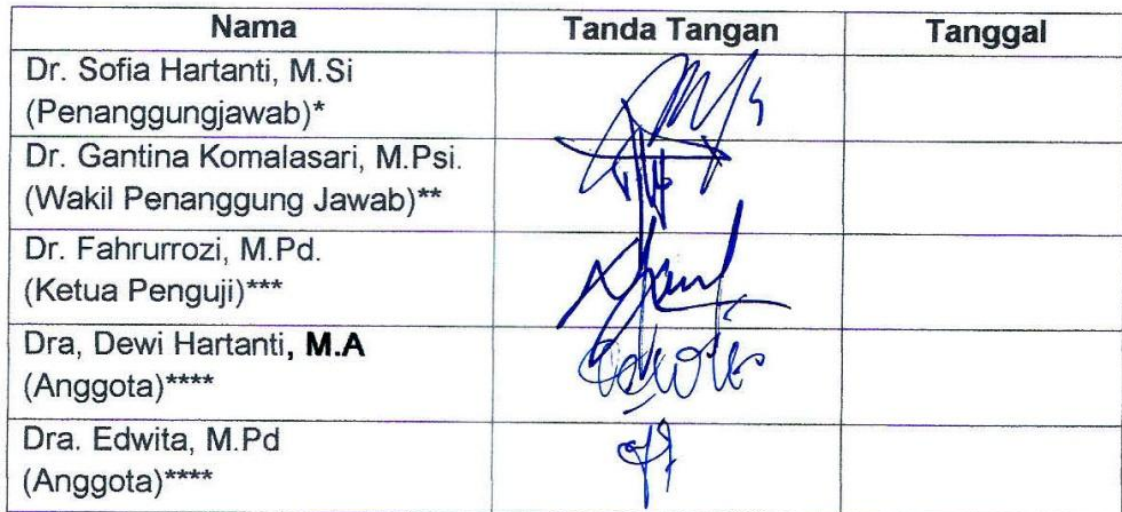 Nama Tanda Tangan Tanggal
Dr. Sofia Hartanti, M.Si
(Penanggungjawab)*
Dr. Gantina Komalasari, M.Psi.
(Wakil Penanggung Jawab)**
Dr. Fahrurrozi, M.Pd.
(Ketua Penguji)***
Dra, Dewi Hartanti, M.A
(Anggota)****
Dra. Edwita, M.Pd
(Anggota)****